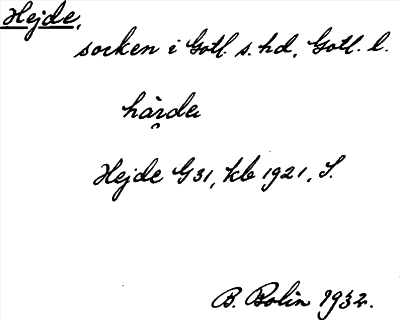 Hejde,
socken i Gotl. s. hd, Gotl. l.
hàrdę
Hejde G31, kb 1921, S.
B. Bolin 1932.